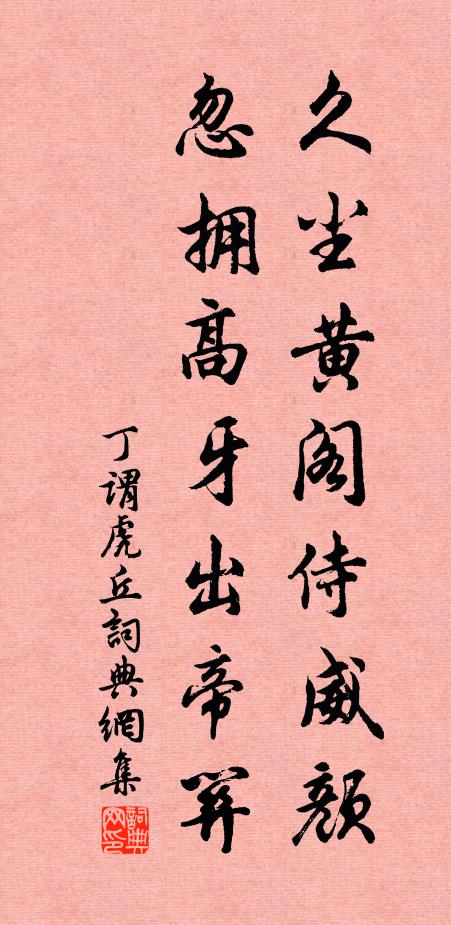 久坐黄阁侍威顔
忽拥高牙出帝关
丁谓虎丘詞典網集
詞典网印